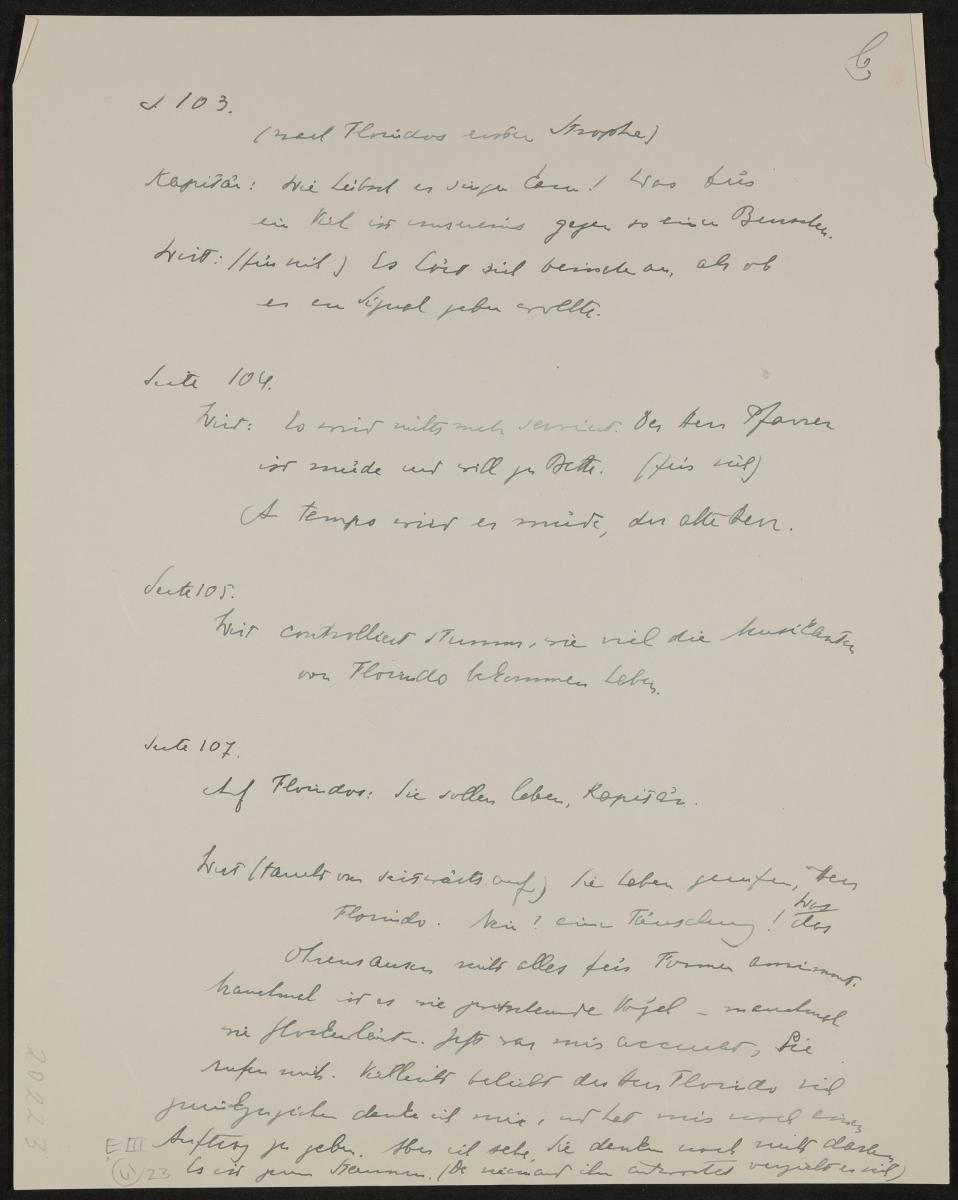 6
S 103.
(nach Florindos erster Strophe)
Kapitän: Wie hübsch er singen kann! Was für
ein Vieh ist unsereins gegen so einen Burschen.
Wirt: (für sich) Es hört sich beinahe an, als ob
er ein Signal geben wollte.
Seite 104.
Wirt: Es wird nichts mehr serviert. Der Herr Pfarrer
ist müde und will zu Bette. (für sich)
A tempo wird er müde, der alte Herr.
Seite 105.
Wirt controlliert stumm, wie viel die Musikanten
von Florindo bekommen haben.
Seite 107.
Auf Florindos: Sie sollen leben, Kapitän.
Wirt (taucht von seitwärts auf) Sie haben gerufen, Herr
Florindo. Nein? eine Täuschung! Was
das
Ohrensausen nicht alles für Formen annimmt.
Manchmal ist es wie zwitschernde Vögel – manchmal
wie Glockenläuten. Jetzt war mirs accurat, Sie
rufen mich. Vielleicht beliebt der Herr Florindo sich
zurückzuziehen denke ich mir, und hat mir noch einen
Auftrag zu geben. Aber ich sehe, Sie denken noch nicht daran,
Es ist zum Staunen. (Da niemand ihm antwortet verzieht er sich)
E III
4/23
20223